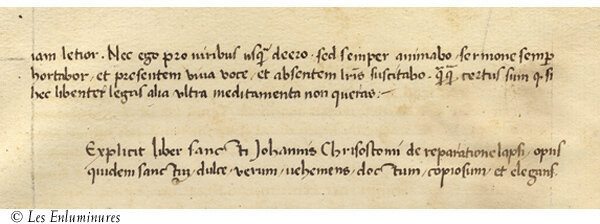 iam letior. Nec ego pro viribus usq̃ deero. sed semper animabo. sermone semp
hortabor, et presentem viva voce, et absentem lr̃is suscitabo. q̃q̃ certus sum q. si
hec libenter legas alia ultra meditamenta non queras:-
Explicit liber sancti Johannis Chrisostomi de reparatione lapsi, opus
quidem sanctũ, dulce, verum, vehemens, doctum, copiosum, et elegans.
© Les Enluminures